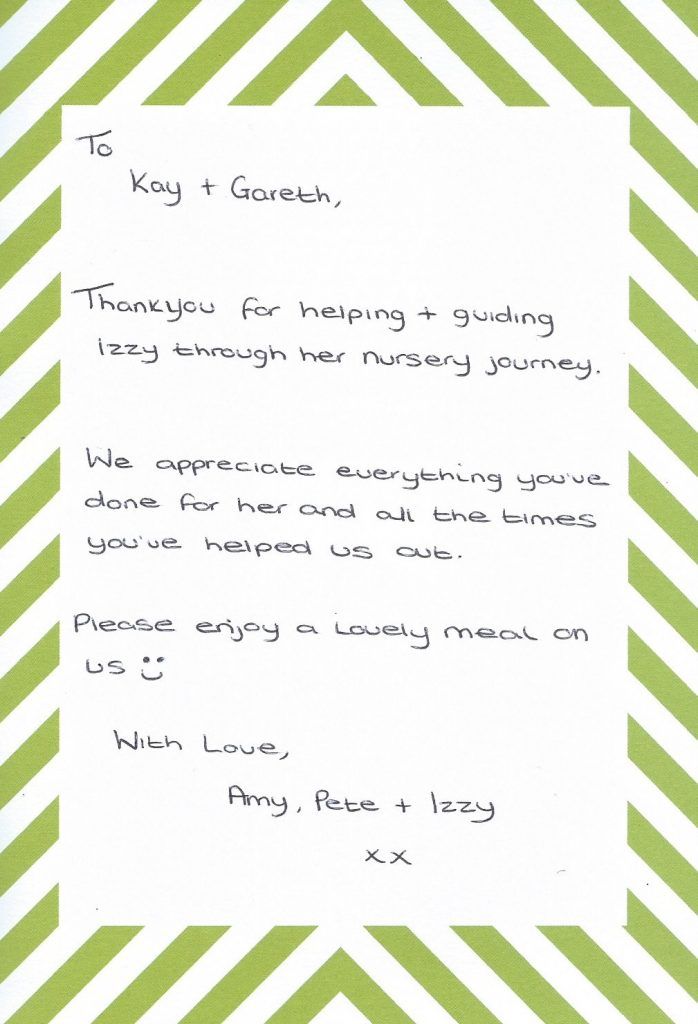 To
Kay + Gareth,
Thankyou for helping + guiding
izzy through her nursery journey.
We appreciate everything you've
done for her and all the times
you've helped us out.
Please enjoy a lovely meal on
us :)
With Love,
Amy, Pete + Izzy
xx